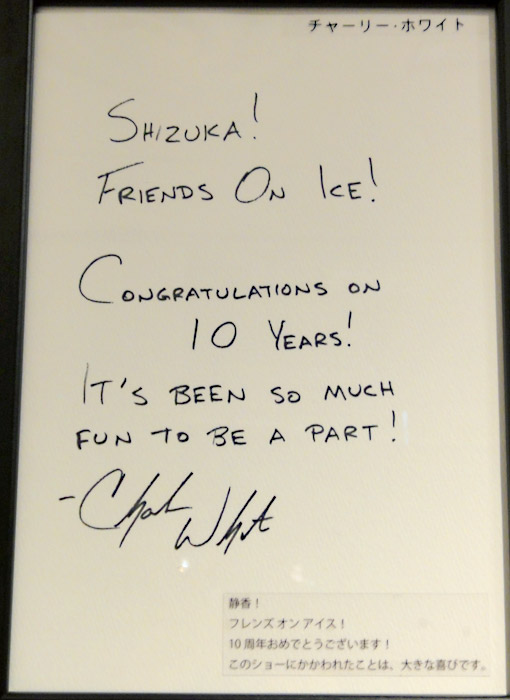 チャーリー・ホワイト
SHIZUKA!
FRIENDS ON ICE!
CONGRATULATIONS ON
10 YEARS!
IT'S BEEN SO MUCH
FUN TO BE A PART!
- Charlie White
静香！
フレンズ オン アイス！
10 周年おめでとうございます！
このショーにかかわれたことは、大きな喜びです。